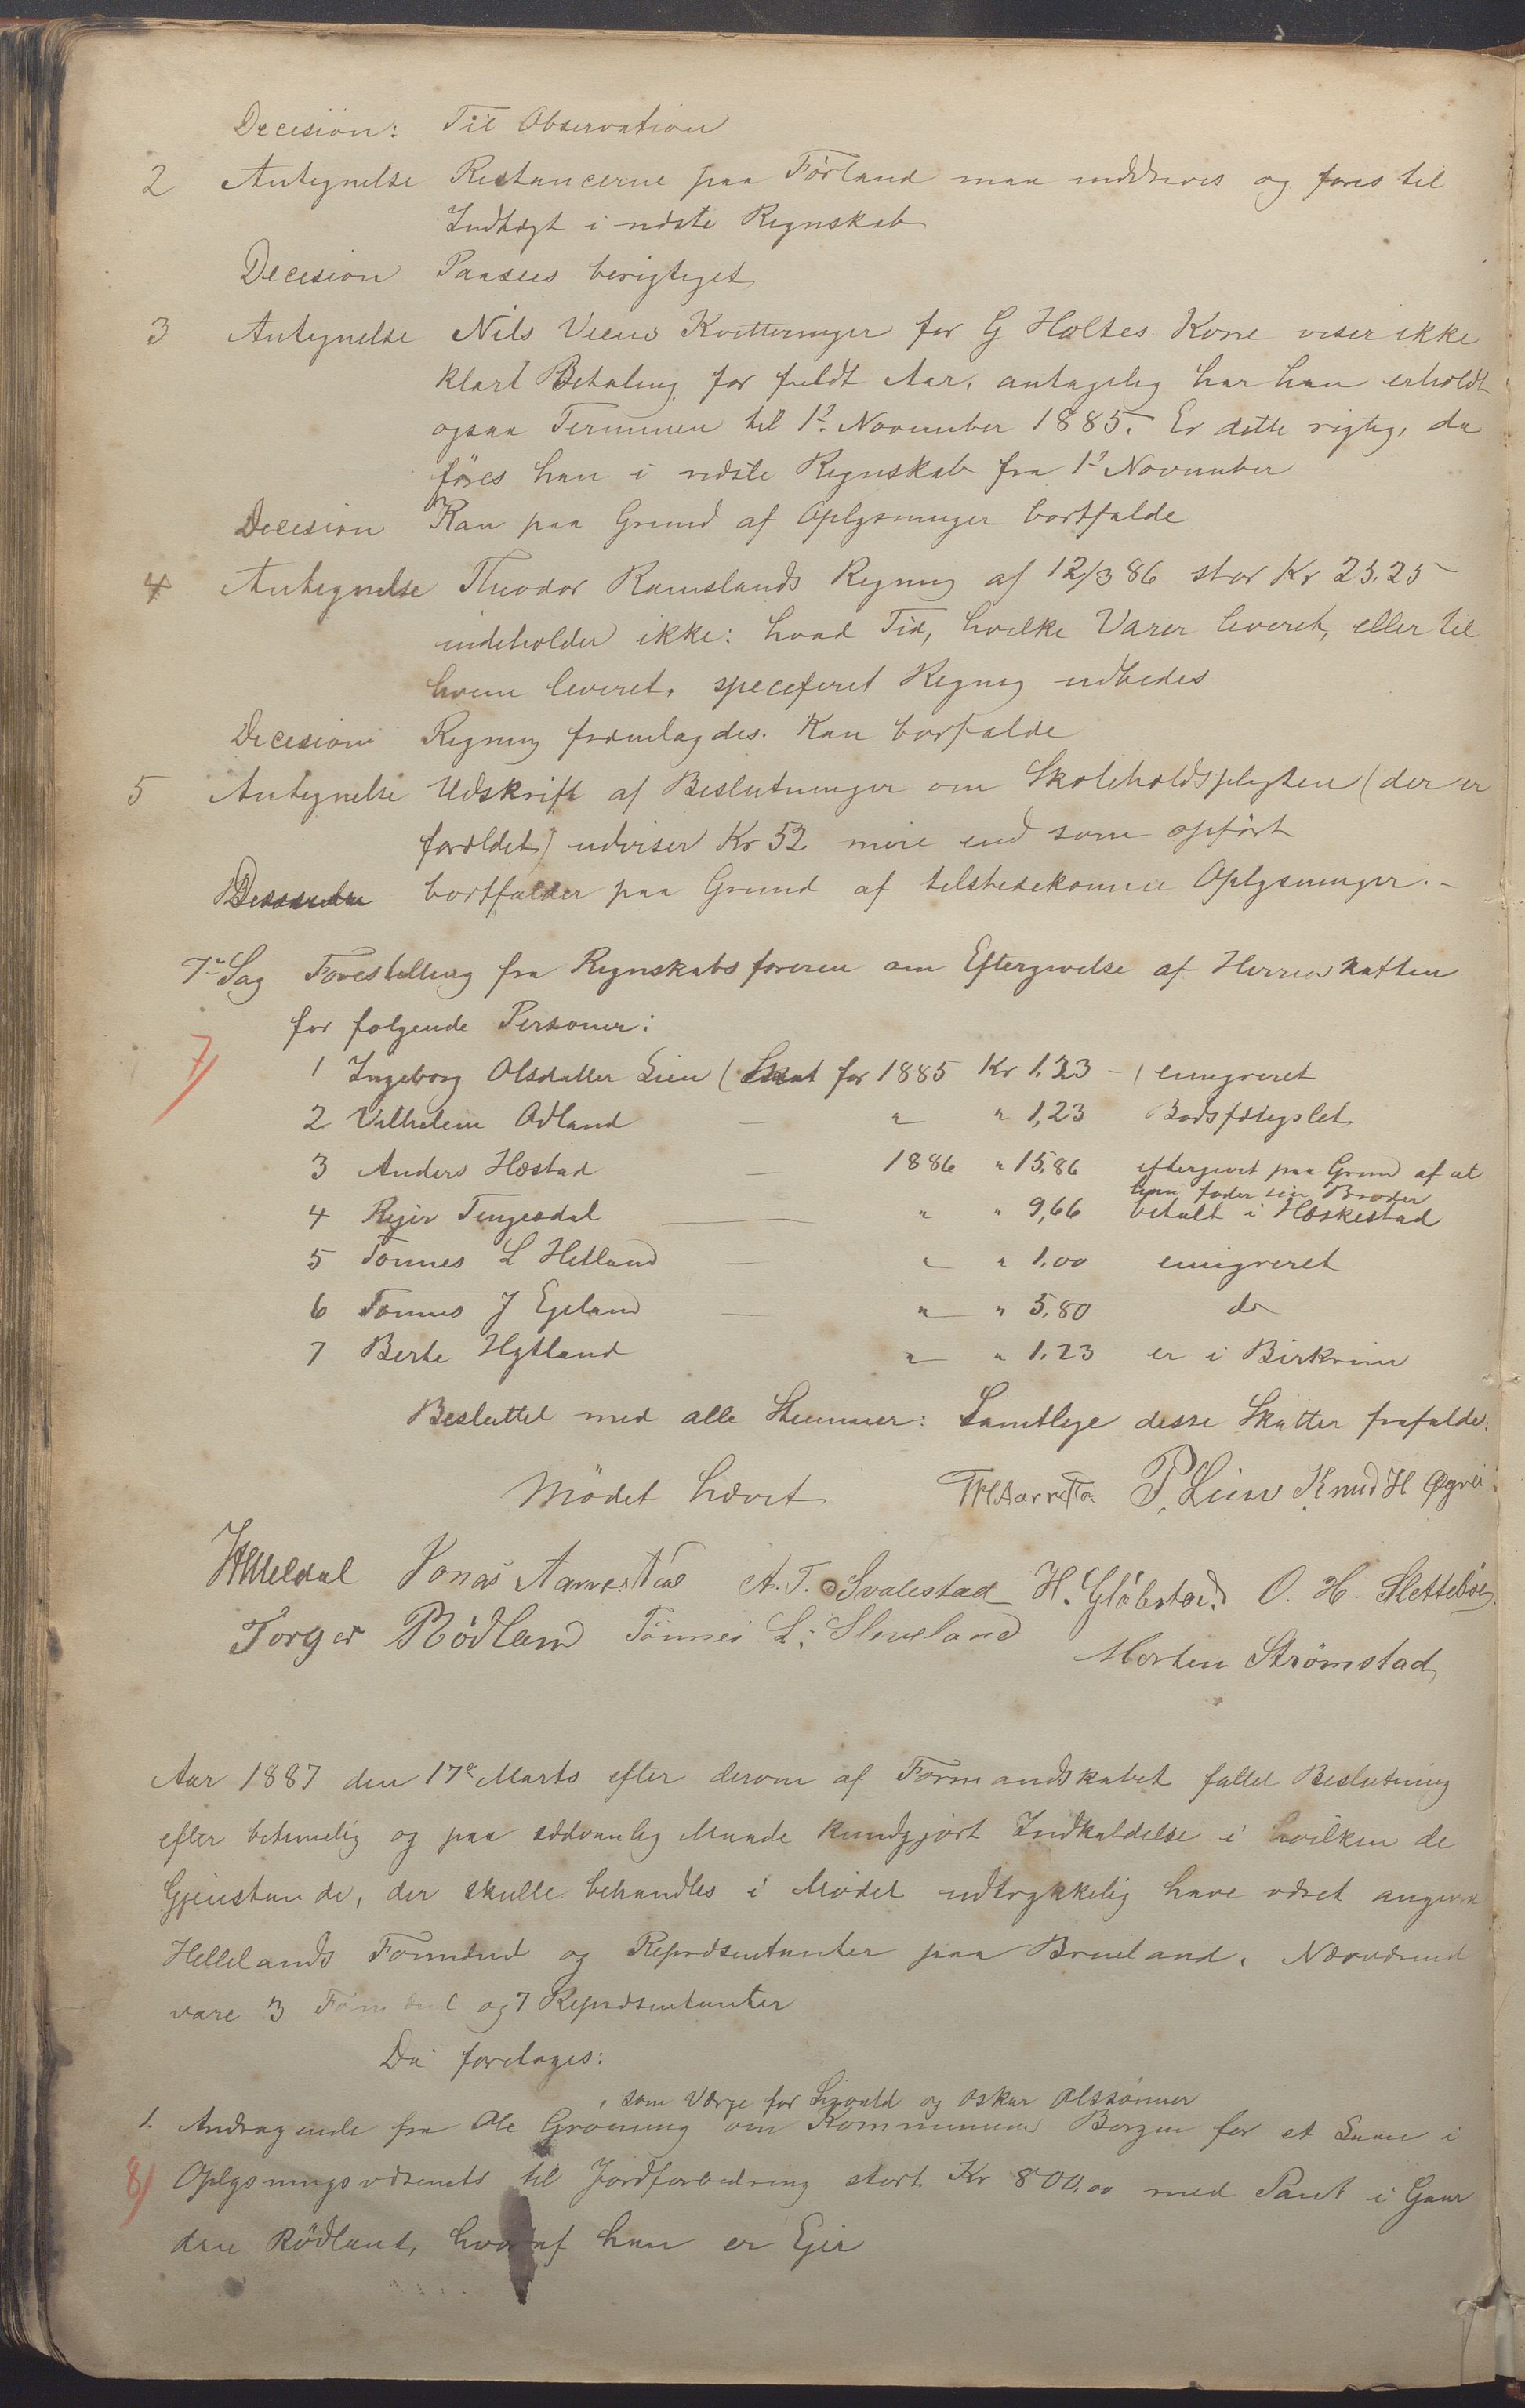 Decision: Til Observation
2 Antegnelse Restancerne paa Förland maa inddrives og føres til
Indtægt i næste Regnskab
Decision Paasees berigtiget
3 Antegnelse Nils Veens Kvitteringer for G Holtes Kone viser ikke
klart Betaling for fuldt Aar, antagelig har han erholdt
ogsaa Terminen til 1ste November 1885. Er dette rigtig, da
föres han i næste Regnskab fra 1ste November
Decision Kan paa Grund af Oplysninger bortfalde
4 Antegnelse Theodor Ramslands Regning af 12/3 86 stor Kr 25.25
indeholder ikke: hvad Tid, hvilke Varer leveret, eller til
hvem leveret, speceferet Regning udbedes
Decision Regning fremlagdes. Kan borfalde
5 Antegnelse Udskrift af Beslutninger om Skoleholdspligten (der er
forældet) udviser Kr 52 mere end som opfört
bortfalder paa Grund af tilstedekomne Oplysninger.-
7de Sag Forestilling fra Regnskabsføreren om Eftergivelse af Herredskatten
for følgende Personer:
7)
1 Ingeborg Olsdatter Lien (Skat for 1885 Kr 1.23 - ) emigreret
2 Vilhelem Ødland — " " 1,23 Bødsfængslet
3 Anders Hæstad — 1886 " 15,86 eftergivet paa Grund af at
han føder sin Broder
4 Rejer Tengesdal — " " 9,66 betalt i Heskestad
5 Tönnes L Hetland — " " 1,00 emigreret
6 Tönnes J Egeland — " " 5,80 do
7 Berte Hytland " " 1.23 er i Birkrem
Besluttet med alle Stemmer: Samtlige disse Skatter frafaldes.
Mödet hævet P. Lien Knud H
Jonas Aarrestad A. T. Svalestad H. Glöbstad. O. H. Slettebö
Torger Rödland Tönnes L. Sleveland
Morten Strømstad
Aar 1887 den 17de Marts efter derom af Formandskabet fattet Beslutning
efter betimelig og paa sædvanlig Maade kundgjort Indkaldelse i hvilken de
Gjenstande, der skulle behandles i Mödet udtrykkelig have været angivne
Hellelands Formænd og Repræsentanter paa Brueland. Nærværend
vare 3 Formænd og 7 Repræsentanter
Da foretoges:
, som Værge for Sigvald og Oskar Olssönner
1. Andragende fra Ole Grøning om Kommunens Borgen for et Laan i
8) Oplysningsvæsenets til Jordforbedring stort Kr 800,00 med Pant i Gaar
den Rödland, hvoraf han er Ejer